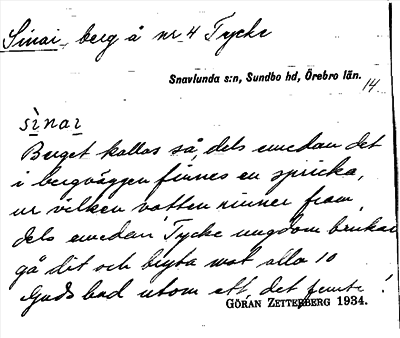 Sinai, berg å nr 4 Tycke
Snavlunda s:n, Sundbo hd, Örebro län.
14
sìnai
Berget kallas så, dels emedan det
i bergväggen finnes en spricka,
ur vilken vatten rinner fram,
dels emedan Tycke ungdom brukar
gå dit och bryta mot alla 10
Guds bud utom ett, det femte!
GÖRAN ZETTERBERG 1934.